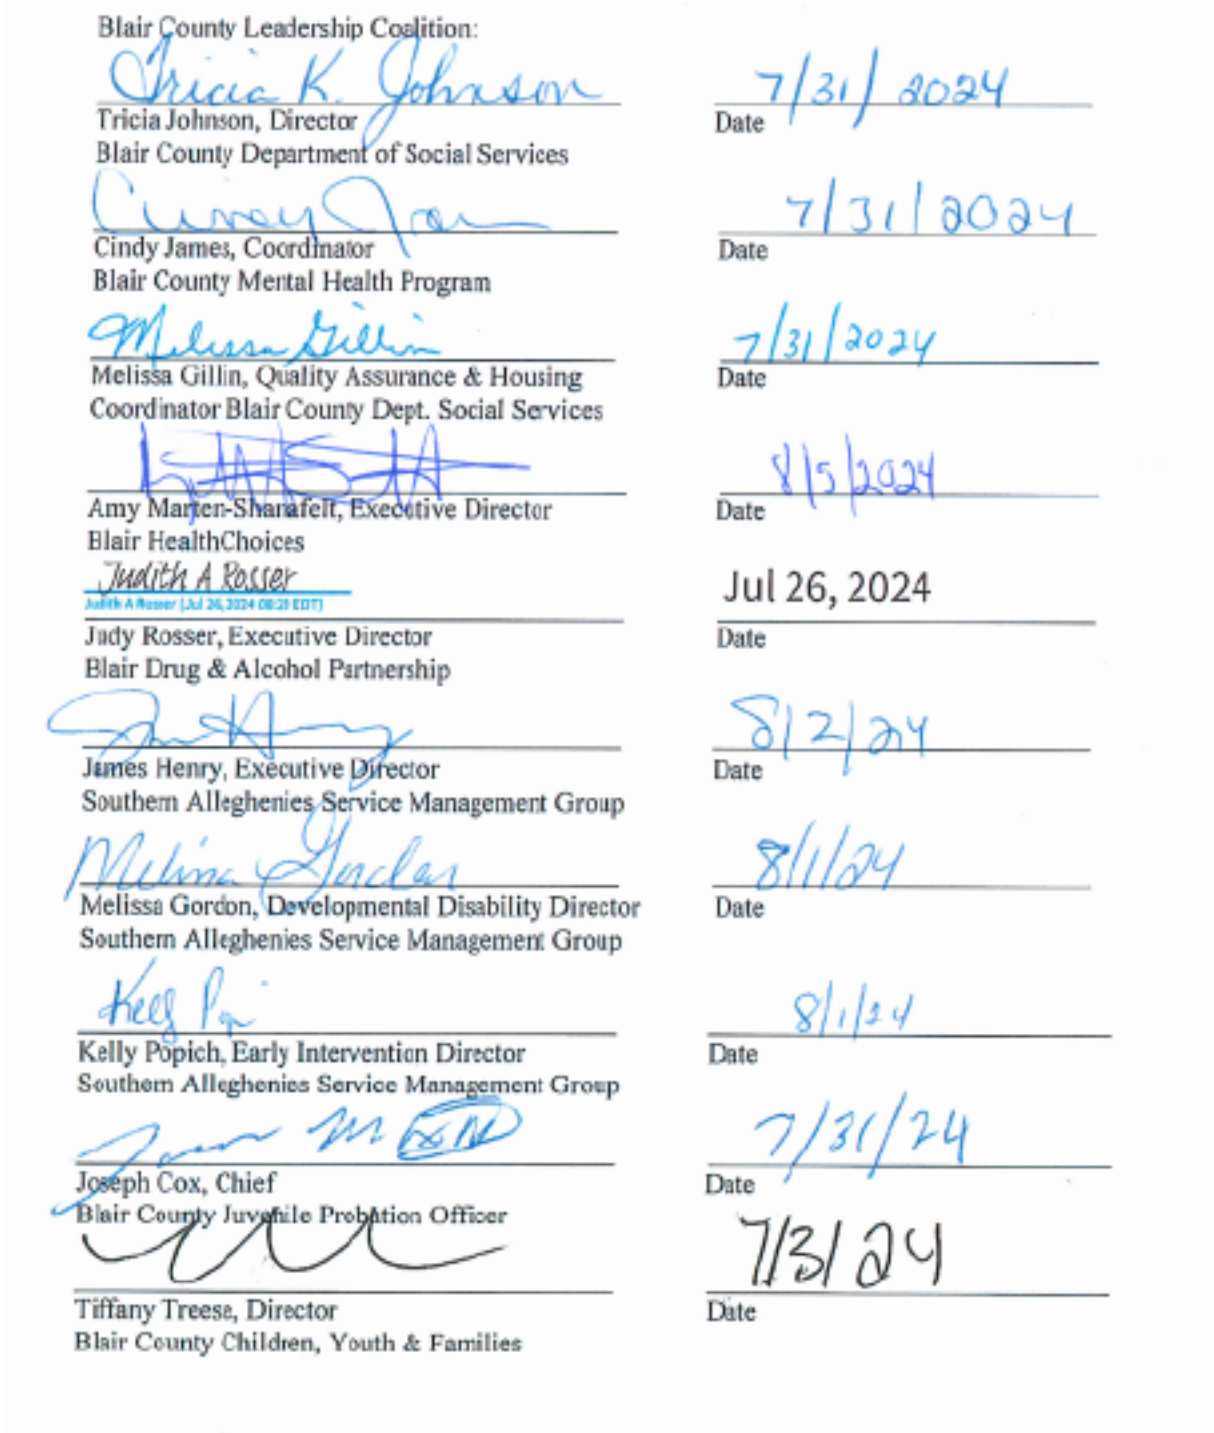 Blair County Leadership Coalition:
Tricia K. Johnson 7/31/2024
Tricia Johnson, Director Date
Blair County Department of Social Services
7/31/2024
Cindy James, Coordinator Date
Blair County Mental Health Program
Melissa Gillin 7/31/2024
Melissa Gillin, Quality Assurance & Housing Date
Coordinator Blair County Dept. Social Services
8/5/2024
Amy Marten-Sharafelt, Executive Director Date
Blair HealthChoices
Judith A Rosser Jul 26, 2024
Judith A Rosser (Jul 26, 2024 08:29 EDT)
Judy Rosser, Executive Director Date
Blair Drug & Alcohol Partnership
8/2/24
James Henry, Executive Director Date
Southern Alleghenies Service Management Group
8/1/24
Melissa Gordon, Developmental Disability Director Date
Southern Alleghenies Service Management Group
8/1/24
Kelly Popich, Early Intervention Director Date
Southern Alleghenies Service Management Group
7/31/24
Joseph Cox, Chief Date
Blair County Juvenile Probation Officer
7/3/24
Tiffany Treese, Director Date
Blair County Children, Youth & Families